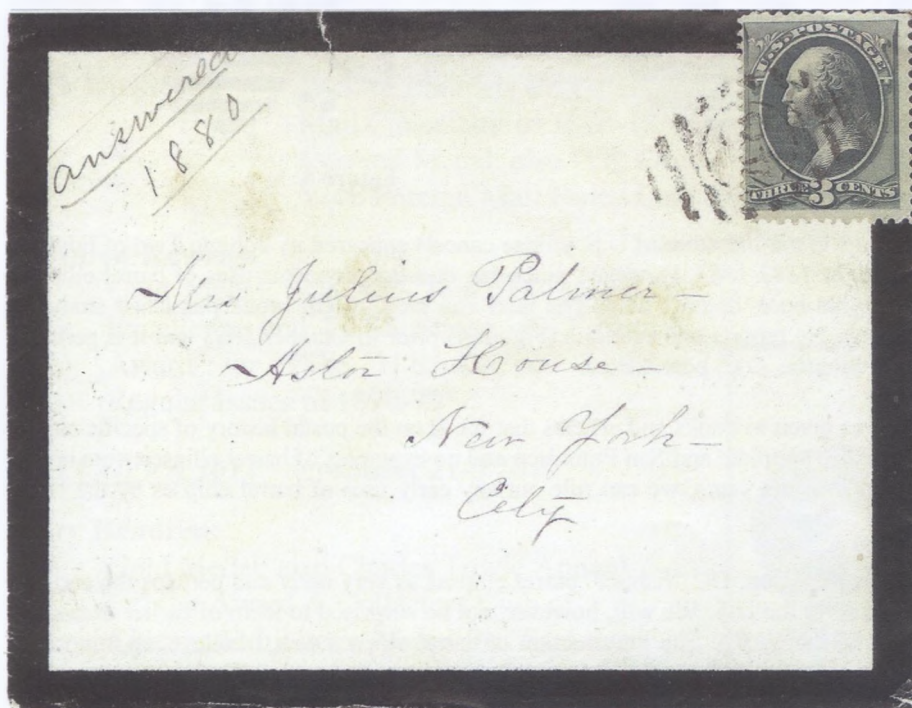 answered
1880
U.S. POSTAGE
THREE 3 CENTS
Mrs Julius Palmer —
Astor House —
New York —
City